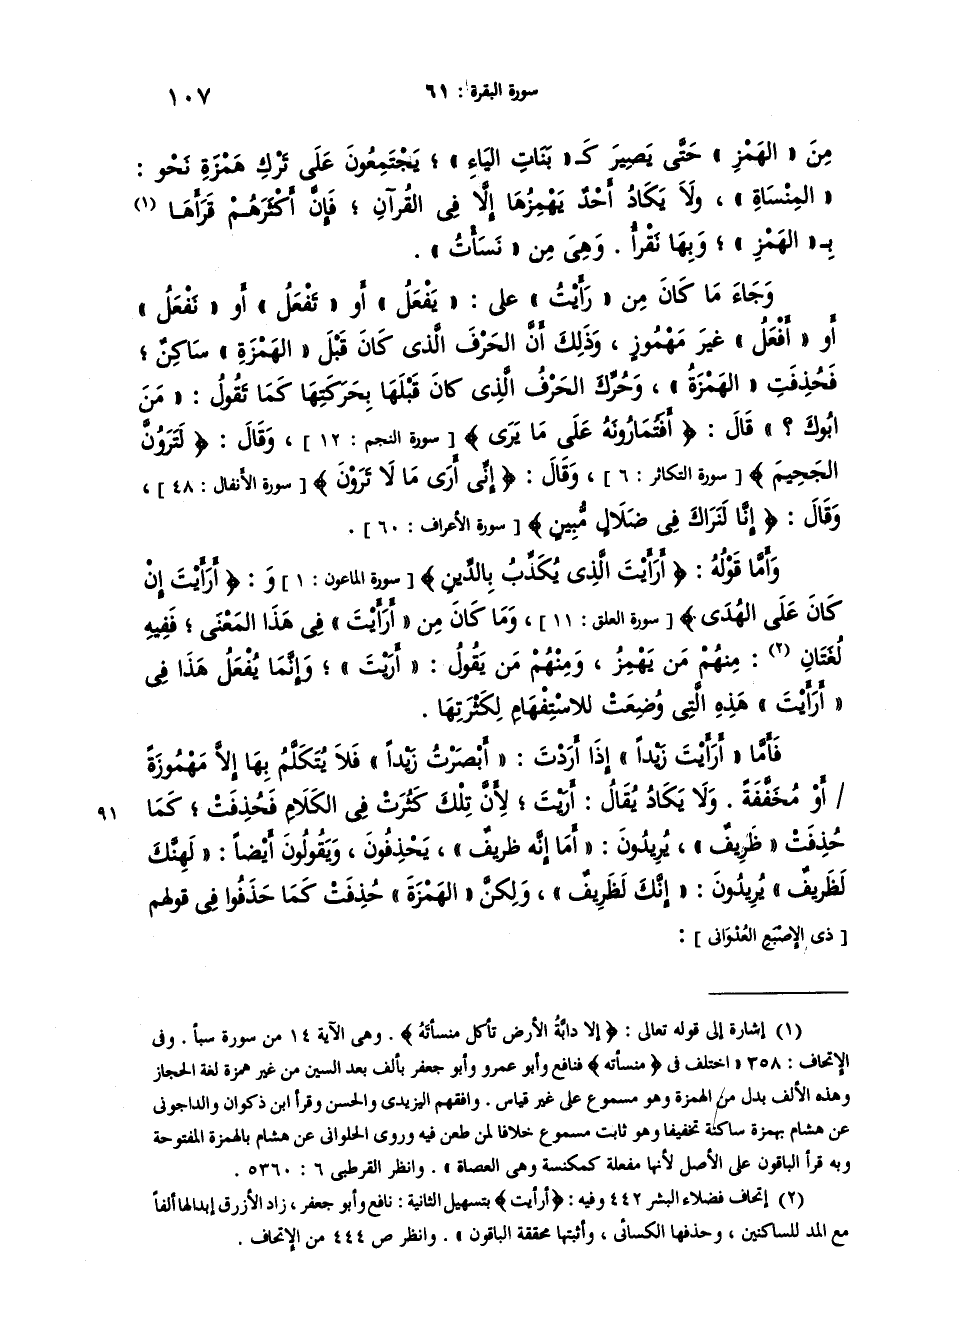 سورة البقرة : ٦١ ١٠٧
مِنَ « الهَمْزِ » حَتَّى يَصِيرَ كَـ « بَنَاتِ اليَاءِ » ؛ يَجْتَمِعُونَ عَلَى تَرْكِ هَمْزَةِ نَحْوِ :
« المِنْسَاةِ » ، ولَا يَكَادُ أَحْدٌ يَهْمِزُهَا إِلَّا فِى القُرآنِ ؛ فَإِنَّ أَكْثَرَهُمْ قَرَأَهَا (١)
بِـ « الهَمْزِ » ؛ وَبِهَا نَقْرأُ . وَهِىَ مِن « نَسَأْتُ » .
وَجَاءَ مَا كَانَ مِن « رَأَيْتُ » على : « يَفْعَلُ » أَو « تَفْعَلُ » أَو « نَفْعَلُ »
أَو « أَفْعَلُ » غيرَ مَهْمُوزٍ ، وَذَلِكَ أَنَّ الحَرْفَ الَّذى كَانَ قَبْلَ « الهَمْزَةِ » سَاكِنٌ ؛
فَحُذِفَتِ « الهَمْزَةُ » ، وَحُرِّكَ الحَرْفُ الَّذِى كانَ قَبْلَهَا بِحَرَكَتِهَا كَمَا تَقُولُ : « مَنَ
ابُوكَ ؟ » قَالَ : ﴿ أَفَتُمَارُونَهُ عَلَى مَا يَرَى ﴾ [ سورة النجم : ١٢ ] ، وَقَالَ : ﴿ لَتَرَوُنَّ
الجَحِيمَ ﴾ [ سورة التكاثر : ٦ ] ، وَقَالَ : ﴿ إِنِّى أَرَى مَا لَا تَرَوْنَ ﴾ [ سورة الأنفال : ٤٨ ] ،
وَقَالَ : ﴿ إِنَّا لَنَرَاكَ فِى ضَلَالٍ مُّبِينٍ ﴾ [ سورة الأعراف : ٦٠ ] .
وَأَمَّا قَوْلُهُ : ﴿ أَرَأَيْتَ الَّذِى يُكَذِّبُ بِالدِّينِ ﴾ [ سورة الماعون : ١ ] وَ : ﴿ أَرَأَيْتَ إِنْ
كَانَ عَلَى الهُدَى ﴾ [ سورة العلق : ١١ ] ، وَمَا كَانَ مِن « أَرَأَيْتَ » فِى هَذَا المَعْنَى ؛ فَفِيهِ
لُغَتَانِ (٢) : مِنهُمْ مَن يَهْمِزُ ، وَمِنْهُمْ مَن يَقُولُ : « أَرَيْتَ » ؛ وَإِنَّمَا يُفْعَلُ هَذَا فِى
« أَرَأَيْتَ » هَذِهِ الَّتِى وُضِعَتْ للاسْتِفْهَامِ لِكَثْرَتِهَا .
فَأَمَّا « أَرَأَيْتَ زَيْداً » إِذَا أَرَدْتَ : « أَبْصَرْتُ زَيْداً » فَلاَ يُتَكَلَّمُ بِهَا إِلاَّ مَهْمُوزَةً
/ أَوْ مُخَفَّفَةً . وَلَا يَكَادُ يُقَالُ : أَرَيْتَ ؛ لِأَنَّ تِلْكَ كَثُرَتْ فِى الكَلَامِ فَحُذِفَتْ ؛ كَمَا ٩١
حُذِفَتْ « ظَرِيفٌ » ، يُرِيدُونَ : « أَمَا إِنَّه ظريفٌ » ، يَحْذِفُون ، وَيَقُولُونَ أَيْضاً : « لَهِنَّكَ
لَظَرِيفٌ » يُرِيدُونَ : « إِنَّكَ لَظَرِيفٌ » ، وَلكِنَّ « الهَمْزَةَ » حُذِفَتْ كَمَا حَذَفُوا فِى قولهم
[ ذى الإِصْبَعِ العُدْوَانى ] :
(١) إشارة إلى قوله تعالى : ﴿ إلا دابَّةُ الأرض تأكل منسأتَهُ ﴾ . وهى الآية ١٤ من سورة سبأ . وفى
الإتحاف : ٣٥٨ « اختلف فى ﴿ منسأته ﴾ فنافع وأبو عمرو وأبو جعفر بألف بعد السين من غير همزة لغة الحجاز
وهذه الألف بدل من الهمزة وهو مسموع على غير قياس . وافقهم اليزيدى والحسن وقرأ ابن ذكوان والداجونى
عن هشام بهمزة ساكنة تخفيفا وهو ثابت مسموع خلافا لمن طعن فيه وروى الحلوانى عن هشام بالهمزة المفتوحة
وبه قرأ الباقون على الأصل لأنها مفعلة كمكنسة وهى العصاة » . وانظر القرطبى ٦ : ٥٣٦٠ .
(٢) إتحاف فضلاء البشر ٤٤٢ وفيه : ﴿أرأيت﴾ بتسهيل الثانية : نافع وأبو جعفر ، زاد الأزرق إبدالها ألفاً
مع المد للساكنين ، وحذفها الكسائى ، وأثبتها محققة الباقون » . وانظر ص ٤٤٤ من الإتحاف .